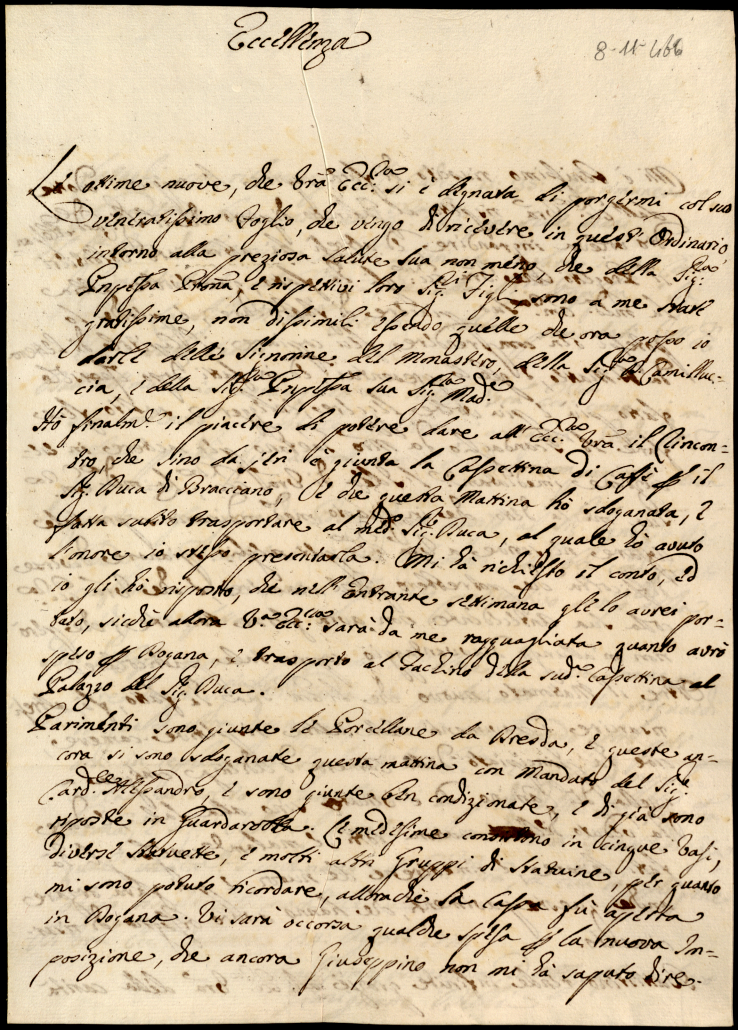 Eccellenza
8-11-466
Le ottime nuove, che Vrã Ecc:za si è degnata di porgermi col suo
veneratissimo Foglio, che vengo di ricevere in quest' Ordinario
intorno alla preziosa salute sua non meno, che della Sig:ra
Pnpessa Prona, e rispettivi loro Sig:ri Figli sono a me state
gratissime, non dissimili essendo quelle che ora posso io
darle delle Signorine del Monastero, della Sig:ra D. Camilluc-
cia, e della Sig:ra Pnpessa sua Sig:ra Mad:e
Hò finalm:e il piacere di potere dare all' Ecc:za Vrã il rincon-
tro, che sino da jeri è giunta la Cassettina di Caffè p il
Sig: Duca di Bracciano, e che questa mattina hò sdoganata, e
fatta subito trasportare al med:o Sig:r Duca, al quale hò avuto
l'onore io stesso presentarla. Mi hà richiesto il conto, ed
io gli hò risposto, che nell' entrante settimana glielo avrei por-
tato, sicchè allora V:ra Ecc:za sarà da me ragguagliata quanto avrò
speso p Dogana, e trasporto al Fachino della sud:a Cassettina al
Palazzo del Sig: Duca.
Parimenti sono giunte le Porcellane da Dresda, e queste an-
cora si sono sdoganate questa mattina con Mandato del Sig:e
Card:le Alessandro, e sono giunte ben condizionate, e di già sono
riposte in Guardarobba. Le medesime consistono in cinque Vasi,
diverse Statuette, e molti altri Gruppi di Statuine, per quanto
mi sono potuto ricordare, allorachè la Cassa fù aperta
in Dogana. Vi sarà occorsa qualche spesa p la nuova Im-
posizione, che ancora Giuseppino non mi hà saputo dire.